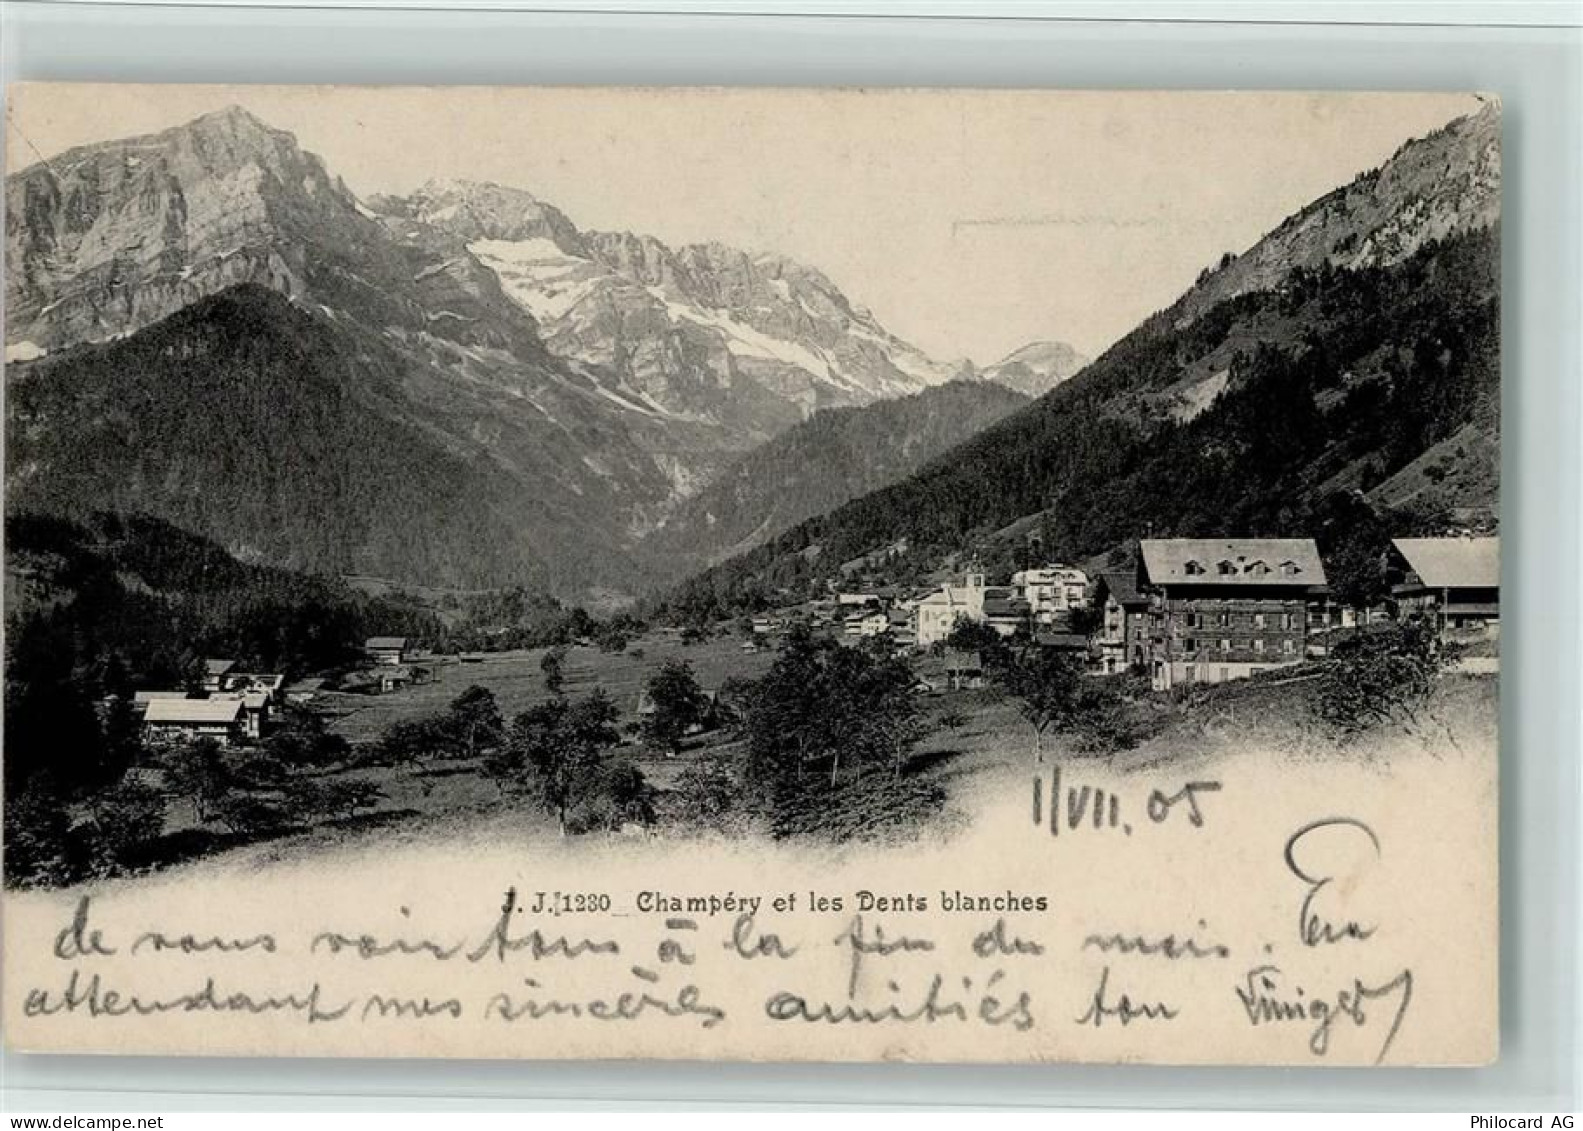 11/VII. 05
J. J. 1230 Champéry et les Dents blanches
de vous voir tous à la fin du mois. En
attendant mes sincères amitiés ton
www.delcampe.net
Philocard AG